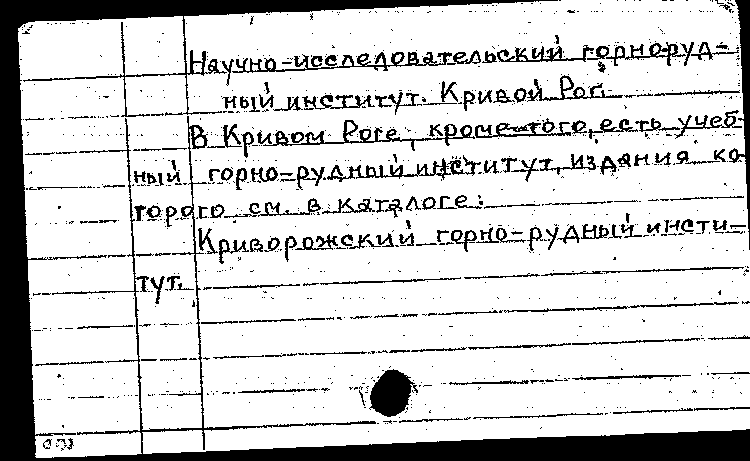 Научно-исследовательский горноруд-
ный институт. Кривой Рог.
В Кривом Роге, кроме того, есть учеб-
ный горно-рудный институт, издания ко-
торого см. в каталоге:
Криворожский горно-рудный инсти-
тут.